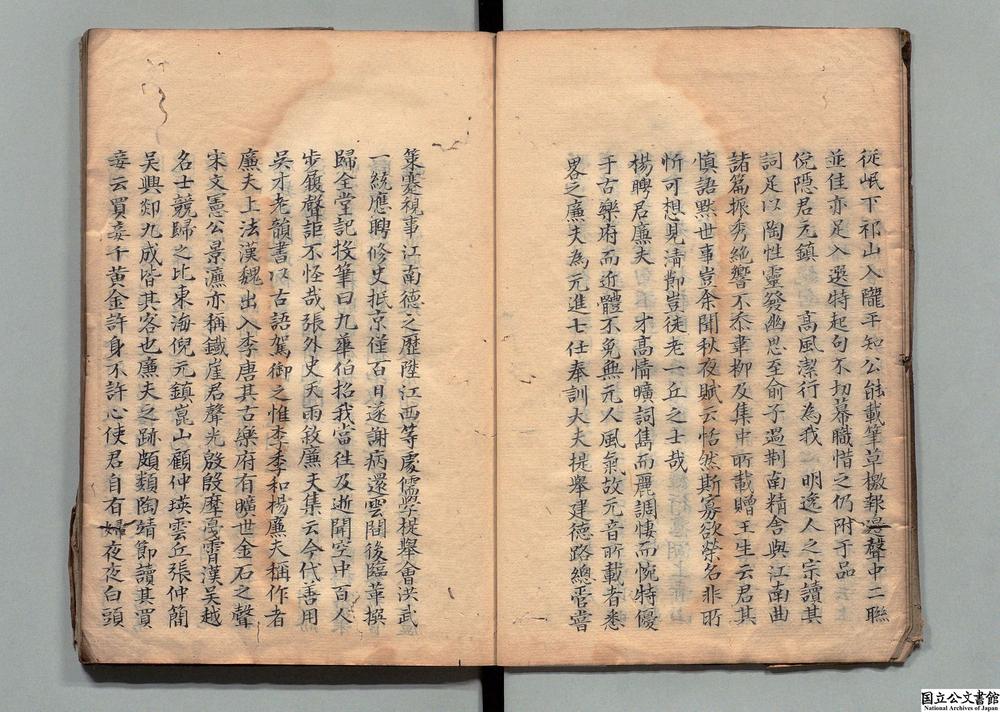 從岷下祁山入隴平知公能載筆草檄報邊聲中二聯
並佳亦足入選特起句不切幕職惜之仍附于品
倪隱君元鎮 高風潔行為我 明逸人之宗讀其
詞足以陶性靈發幽思至俞子過荆南精舍與江南曲
諸篇振秀絶響不忝韋柳及集中所載贈王生云君其
慎語默世事豈余聞秋夜賦云恬然斯寡欲榮名非所
忻可想見清節豈徒老一丘之士哉
楊聘君廉夫 才高情曠詞雋而麗調悽而惋特優
于古樂府而近體不免無元人風氣故元音所載者悉
畧之廉夫為元進士仕奉訓大夫提舉建德路總管嘗
築憂視事江南德之歷陞江西等處儒學提舉會洪武
一統應聘修史抵京僅百日遂謝病還雲間後臨革撰
歸全堂記投筆曰九華伯招我當往及逝開空中百人
步履聲詎不怪哉張外史天雨敘廉夫集云今代善用
吳才老韻書以古語駕御之惟李季和楊廉夫稱作者
廉夫上法漢魏出入李唐其古樂府有曠世金石之聲
宋文憲公景濂亦稱鐵崖君聲光殷殷摩戞霄漢吳越
名士競歸之比東海倪元鎮崑山顧仲瑛雲丘張仲簡
吳興郯九成皆其客也廉夫之跡頗類陶靖節讀其買
妾云買妾千黃金許身不許心使君自有婦夜夜白頭
国立公文書館
National Archives of Japan